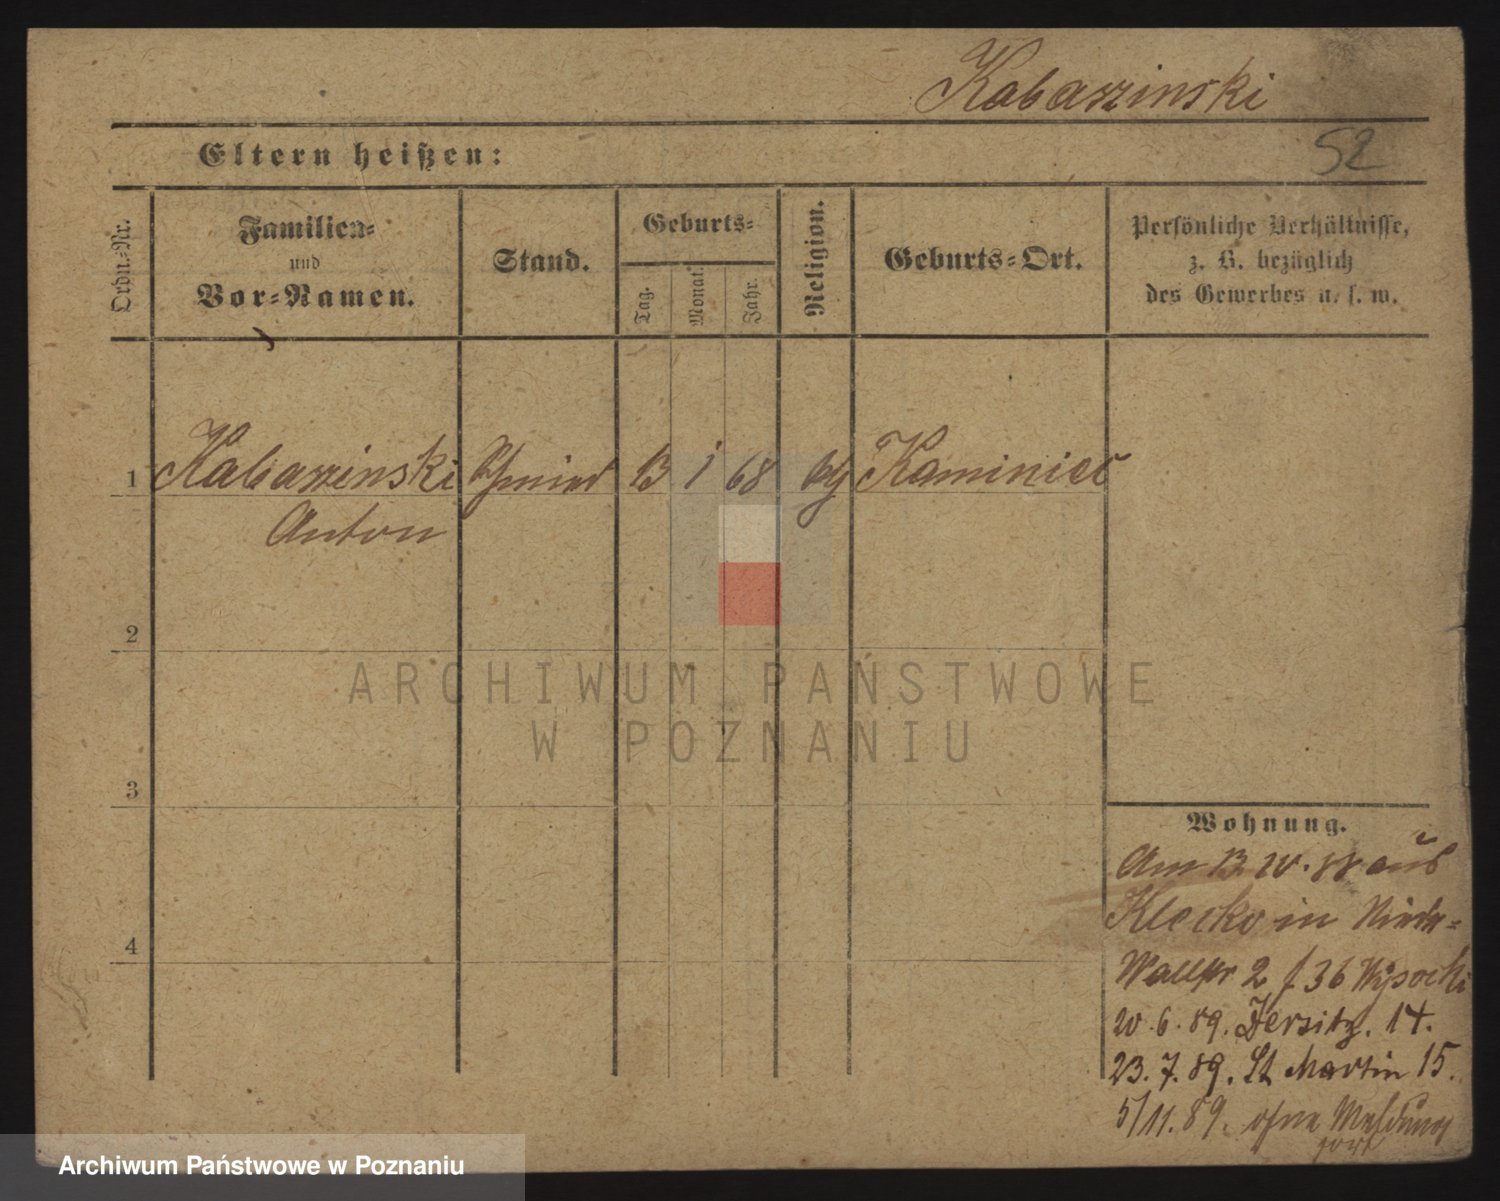 Kabaszinski
52
Eltern heißen:
Ordn.-Nr.
Familien-
und
Vor-Namen.
Stand.
Geburts-
Tag.
Monat.
Jahr.
Religion.
Geburts-Ort.
Persönliche Verhältnisse,
z. B. bezüglich
des Gewerbes u. s. w.
1 Kabaszinski Schmied 13 1 68 Kaminiec
Anton
2
3
4
ARCHIWUM PAŃSTWOWE
W POZNANIU
Wohnung.
Am 13. 10. 88 aus
Klecko in Nieder-
Wallstr 2 f 36 Wysocki
20. 6. 89. Jersitz. 14.
23. 7. 89. St Martin 15.
5/11. 89. ohne Meldung
fort
Archiwum Państwowe w Poznaniu